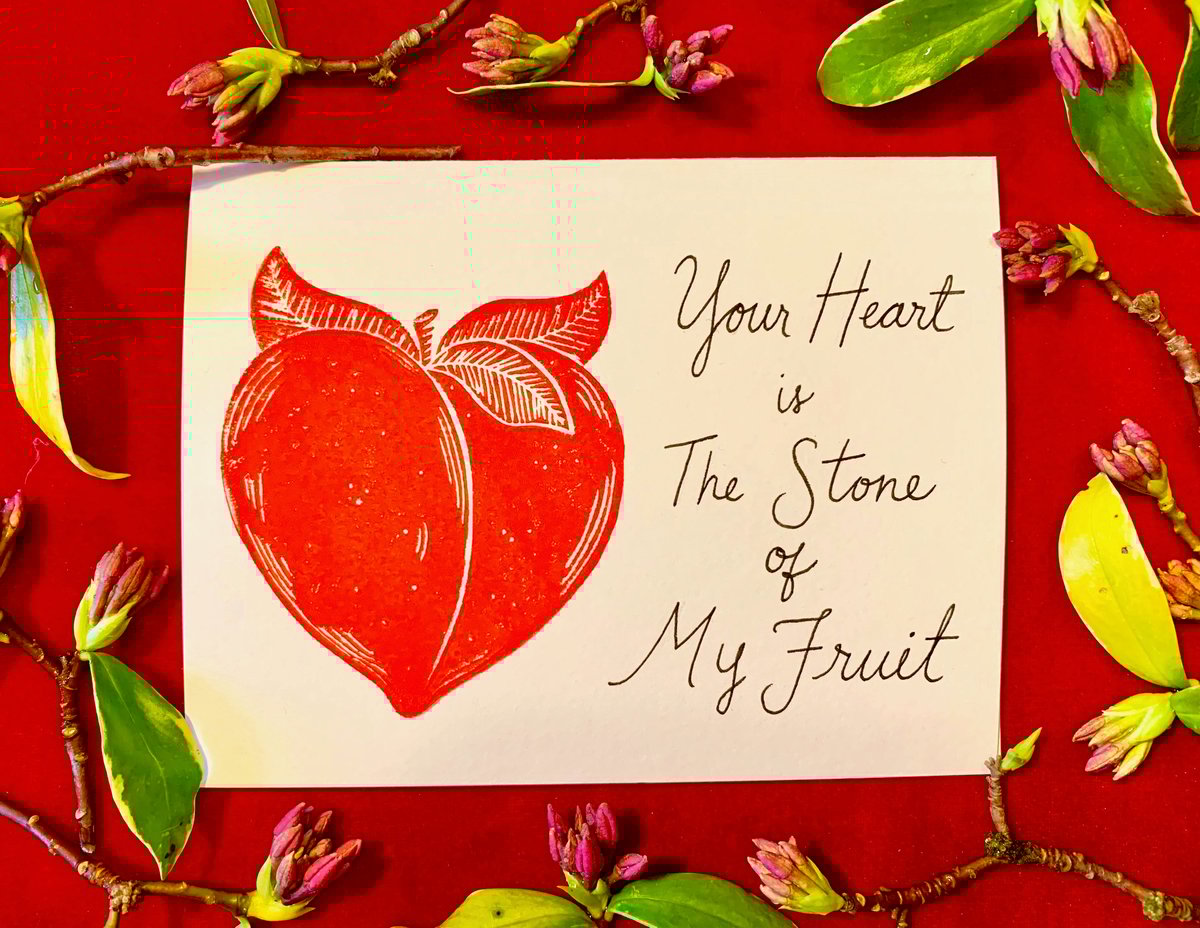 Your Heart
is
The Stone
of
My Fruit